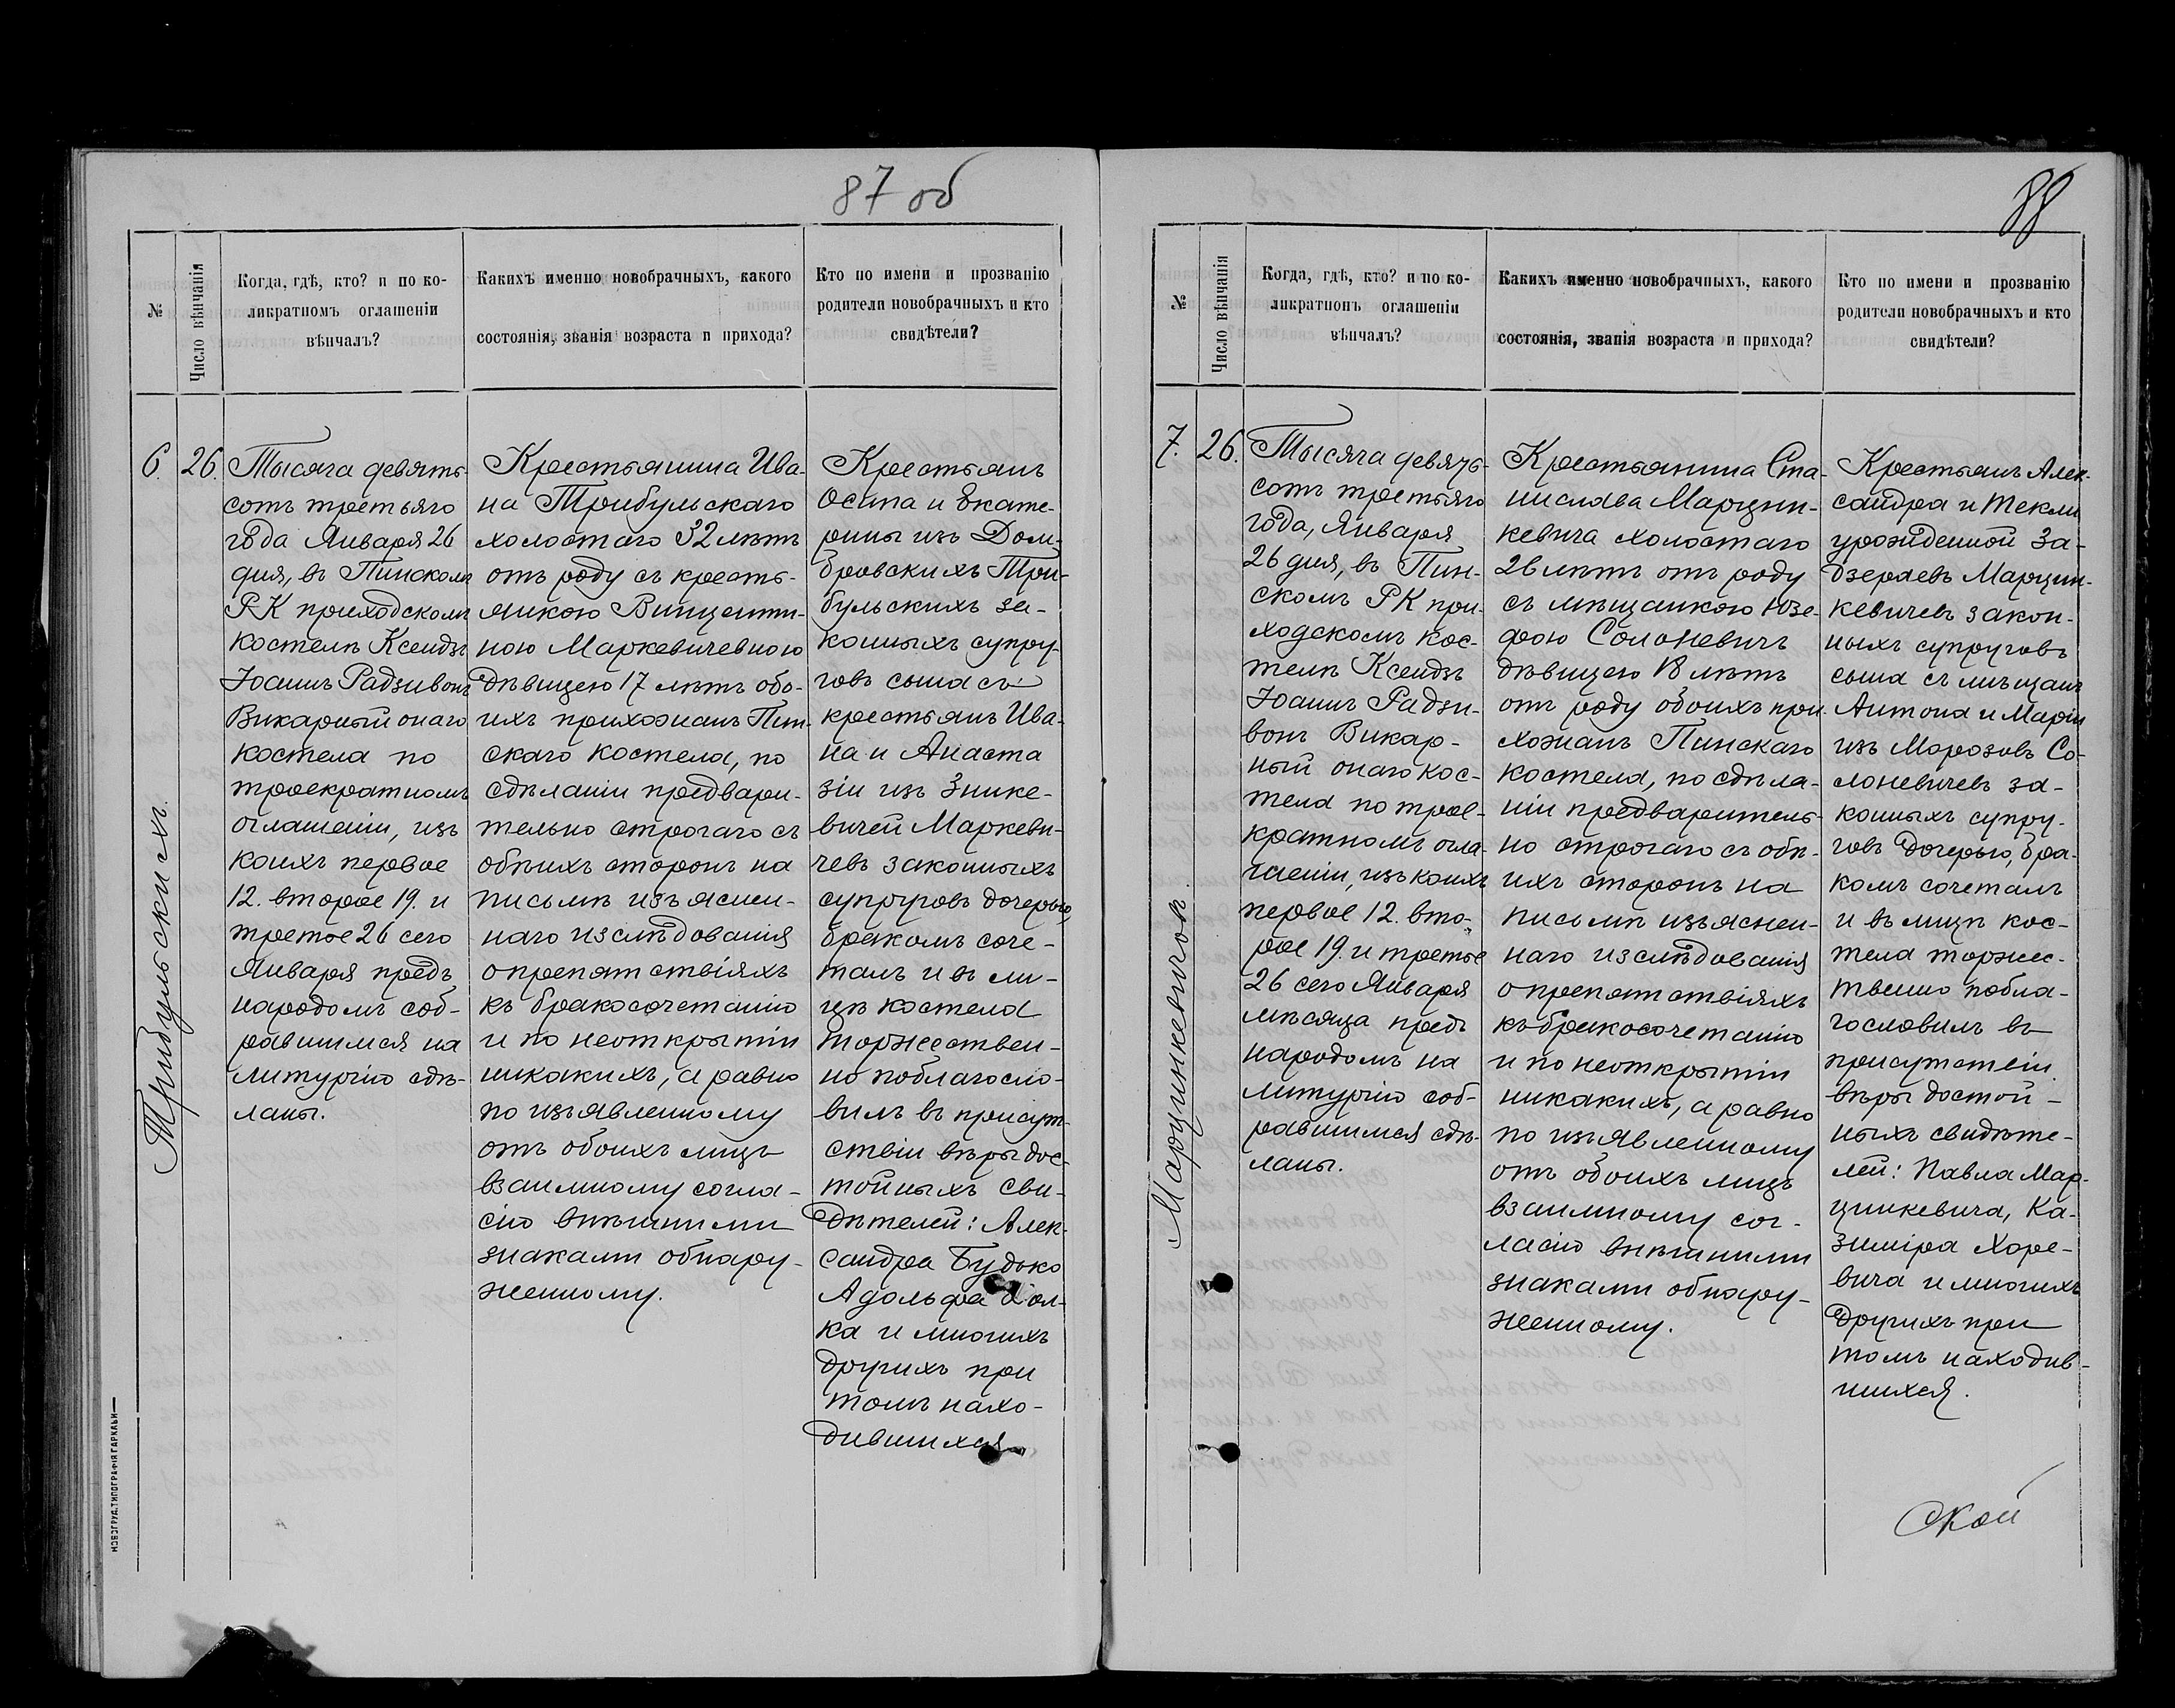 87 об
№
Число вѣнчанія
Когда, гдѣ, кто? и по ко-
ликратномъ оглашеніи
вѣнчалъ?
Какихъ именно новобрачныхъ, какого
состоянія, званія возраста и прихода?
Кто по имени и прозванію
родители новобрачныхъ и кто
свидѣтели?
Трибульскихъ.
6.
26.
Тысяча девять-
сотъ третьяго
года Января 26
дня, въ Пинскомъ
РК приходскомъ
костелѣ Ксендзъ
Іоаннъ Радзивонъ
Викарный онаго
костела по
троекратномъ
оглашеніи, изъ
коихъ первое
12. второе 19. и
третое 26 сего
Января предъ
народомъ соб-
равшимся на
литургію сдѣ-
ланы.
Крестьянина Ива-
на Трибульскаго
холостаго 32 лѣтъ
отъ роду съ кресть-
янкою Винценти-
ною Маркевичевною
дѣвицею 17 лѣтъ обо-
ихъ прихожанъ Пин-
скаго костела, по
сдѣланіи предвари-
тельно строгаго съ
обѣихъ сторонъ на
письмѣ изъяснен-
наго изслѣдованія
о препятствіяхъ
къ бракосочетанію
и по неоткрытіи
никакихъ, а равно
по изъявленному
отъ обоихъ лицъ
взаимному согла-
сію внѣшними
знаками обнару-
женному.
Крестьянъ
Осипа и Екате-
рины изъ Дом-
бровскихъ Три-
бульскихъ за-
конныхъ супру-
говъ сына съ
крестьянъ Ива-
на и Анаста
зіи изъ Зинке-
вичей Маркеви-
чевъ законныхъ
супруговъ дочерью,
бракомъ соче-
талъ и въ ли-
цѣ костела
торжествен-
но поблагосло-
вилъ въ присут-
ствіи вѣры дос-
тойныхъ сви-
дѣтелей: Алек-
сандра Будько
Адольфа
ка и многихъ
другихъ при
томъ нахо-
дившихся
НОВОГРУД. ТИПОГРАФІЯ ГАРКАВИ
88
№
Число вѣнчанія
Когда, гдѣ, кто? и по ко-
ликратнонъ оглашеніи
вѣнчалъ?
Какихъ именно новобрачныхъ, какого
состоянія, званія возраста и прихода?
Кто по имени и прозванію
родители новобрачныхъ и кто
свидѣтели?
Марцинкевичовъ.
7.
26.
Тысяча девять-
сотъ третьяго
года, Января
26 дня, въ Пин-
скомъ РК при-
ходскомъ кос-
телѣ Ксендзъ
Іоаннъ Радзи-
вонъ Викар-
ный онаго кос-
тела по трое-
кратномъ огла-
шеніи, изъ коихъ
первое 12. вто-
рое 19. и третье
26 сего Января
мѣсяца предъ
народомъ на
литургію соб-
равшимся сдѣ-
ланы.
Крестьянина Ста-
нислава Марцин-
кевича холостаго
26 лѣтъ отъ роду
съ мѣщанкою Юзе-
фою Солоневичъ
дѣвицею 18 лѣтъ
отъ роду обоихъ при-
хожанъ Пинскаго
костела, по сдѣла-
ніи предваритель-
но строгаго съ обѣ-
ихъ сторонъ на
письмѣ изъяснен-
наго изслѣдованія
о препятствіяхъ
къ бракосочетанію
и по неоткрытіи
никакихъ, а равно
по изъявленному
отъ обоихъ лицъ
взаимному сог-
ласію внѣшними
знаками обнару-
женному.
Крестьянъ Алек-
сандра и Текли
урожденной За-
дзераевъ Марцин-
кевичевъ закон-
ныхъ супруговъ
сына съ мѣщанъ
Антона и Маріи
изъ Морозовъ Со-
лоневичевъ за-
конныхъ супру-
говъ дочерью, бра-
комъ сочеталъ
и въ лицѣ кос-
тела торжес-
твенно побла-
гословилъ въ
присутствіи
вѣры достой-
ныхъ свидѣте-
лей: Павла Мар-
цинкевича, Ка-
зиміра Харе-
вича и многихъ
другихъ при
томъ находив-
шихся.
ской